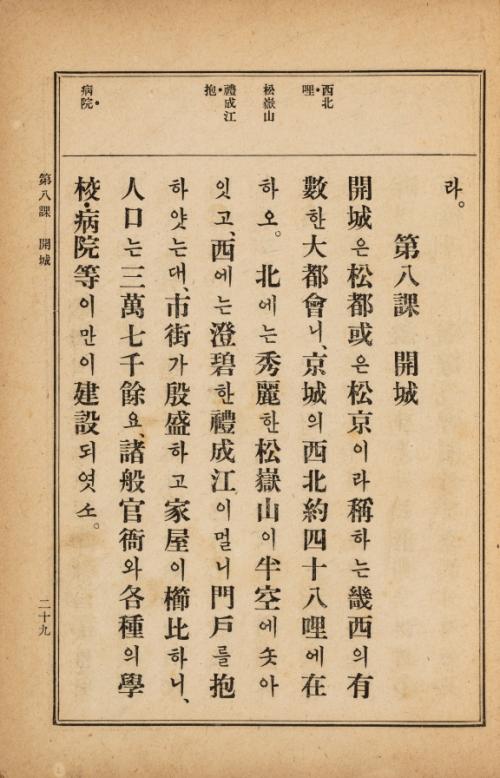 西北
哩·
松嶽山
禮成江
抱·
病院·
라。
第八課 開城
開城은松都或은松京이라稱하는畿西의有
數한大都會니、京城의西北約四十八哩에在
하오。 北에는秀麗한松嶽山이半空에솟아
잇고、西에는澄碧한禮成江이멀니門戶를抱
하얏는대、市街가殷盛하고家屋이櫛比하니、
人口는三萬七千餘요、諸般官衙와各種의學
校·病院等이만이建設되엿소。
第八課 開城
二十九